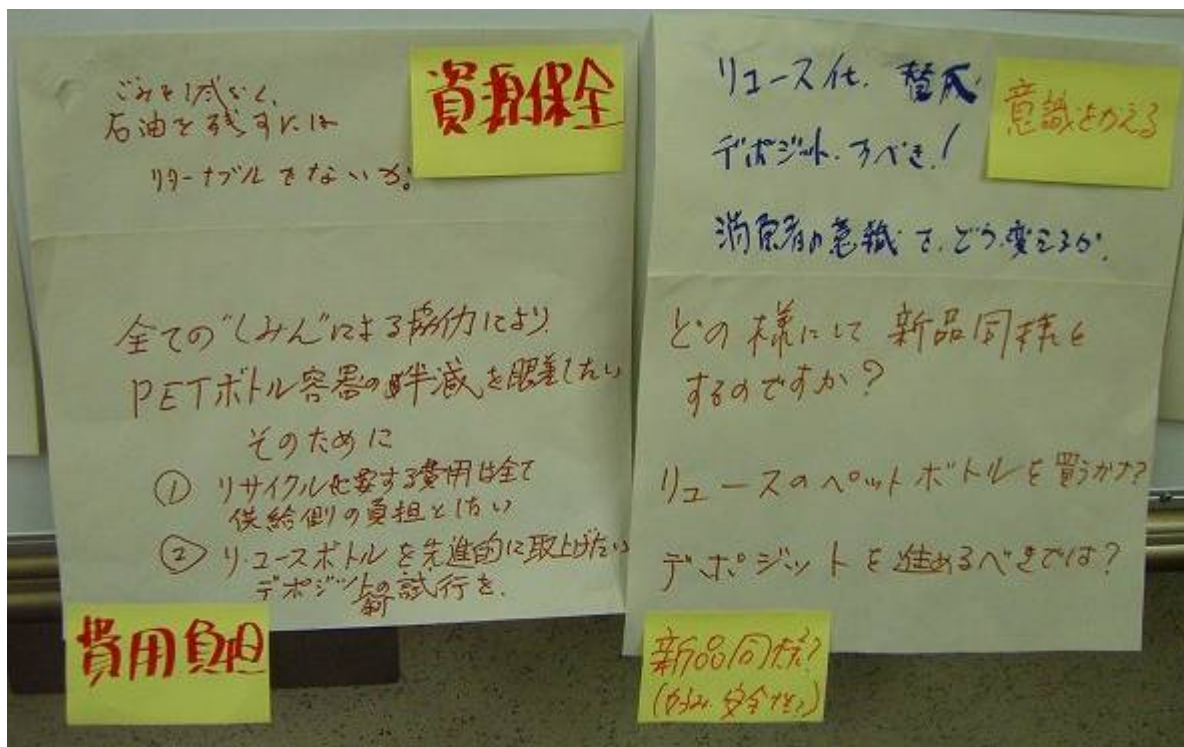 ごみを減らし、
石油を残すには
リターナブルをないか。
資源保全
全ての"しみん"による協力により
PETボトル容器の半減を したい
そのために
① リサイクルに要する費用は全て
供給側の負担としたい
② リユースボトルを先進的に取上げたい
デポジットの試行を、
費用負担
リユース化、賛成
デポジットすべき!
消費者の意識を、どう変えるか、
意識をかえる
どの様にして新品同様と
するのですか?
リュースのペットボトルを買うかナ?
デポジットを進めるべきでは?
新品同様?
安全性?)